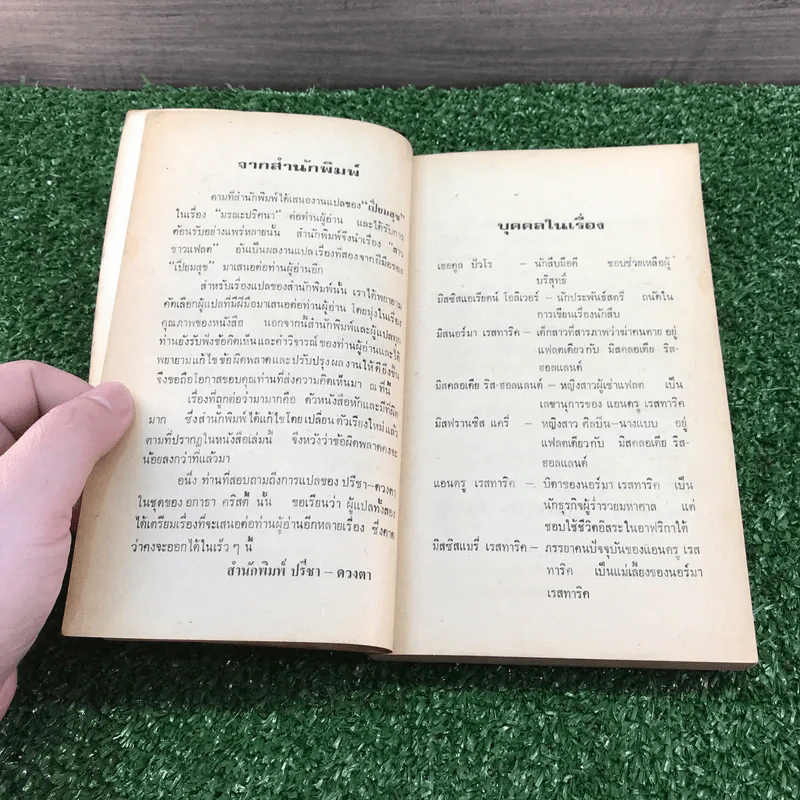 จากสำนักพิมพ์
ตามที่สำนักพิมพ์ได้เสนองานแปลของ "เปี่ยมสุข"
ในเรื่อง "มรณะปริศนา" ต่อท่านผู้อ่าน และได้รับการ
ต้อนรับอย่างแพร่หลายนั้น สำนักพิมพ์จึงนำเรื่อง "สาว
ชาวแฟลต" อันเป็นผลงานแปลเรื่องที่สองจากฝีมือของ
"เปี่ยมสุข" มาเสนอต่อท่านผู้อ่านอีก
สำหรับเรื่องแปลของสำนักพิมพ์นั้น เราได้พยายาม
คัดเลือกผู้แปลที่มีฝีมือมาเสนอต่อท่านผู้อ่าน โดยมุ่งในเรื่อง
คุณภาพของหนังสือ นอกจากนี้สำนักพิมพ์และผู้แปลทุก
ท่านยังรับฟังข้อคิดเห็นและคำวิจารณ์ของท่านผู้อ่านและได้
พยายามแก้ไขข้อผิดพลาดและปรับปรุงผลงานให้ดียิ่งขึ้น
จึงขอถือโอกาสขอบคุณท่านที่ส่งความคิดเห็นมา ณ ที่นี้
เรื่องที่ถูกต่อว่ามามากคือ ตัวหนังสือหักและมีที่ผิด
มาก ซึ่งสำนักพิมพ์ได้แก้ไขโดยเปลี่ยนตัวเรียงใหม่แล้ว
ตามที่ปรากฏในหนังสือเล่มนี้ จึงหวังว่าข้อผิดพลาดคงจะ
น้อยลงกว่าที่แล้วมา
อนึ่ง ท่านที่สอบถามถึงการแปลของ ปรีชา-ดวงตา
ในชุดของ อกาธา คริสตี้ นั้น ขอเรียนว่า ผู้แปลทั้งสอง
ได้เตรียมเรื่องที่จะเสนอต่อท่านผู้อ่านอีกหลายเรื่อง ซึ่งคาด
ว่าคงจะออกได้ในเร็ว ๆ นี้
สำนักพิมพ์ ปรีชา – ดวงตา
บุคคลในเรื่อง
เฮอคูล ปัวโร – นักสืบมือดี ชอบช่วยเหลือผู้
บริสุทธิ์
มิสซิสแอเรียดน์ โอลิเวอร์ – นักประพันธ์สตรี ถนัดใน
การเขียนเรื่องนักสืบ
มิสนอร์มา เรสทาริค – เด็กสาวที่สารภาพว่าฆ่าคนตาย อยู่
แฟลตเดียวกับ มิสคลอเดีย ริส-
ฮอลแลนด์
มิสคลอเดีย ริส-ฮอลแลนด์ – หญิงสาวผู้เช่าแฟลต เป็น
เลขานุการของ แอนดรู เรสทาริค
มิสฟรานซิส แครี่ – หญิงสาว ศิลปิน-นางแบบ อยู่
แฟลตเดียวกับ มิสคลอเดีย ริส-
ฮอลแลนด์
แอนดรู เรสทาริค – บิดาของนอร์มา เรสทาริค เป็น
นักธุรกิจผู้ร่ำรวยมหาศาล แต่
ชอบใช้ชีวิตอิสระในอาฟริกาใต้
มิสซิสแมรี่ เรสทาริค – ภรรยาคนปัจจุบันของแอนดรู เรส
ทาริค เป็นแม่เลี้ยงของนอร์มา
เรสทาริค